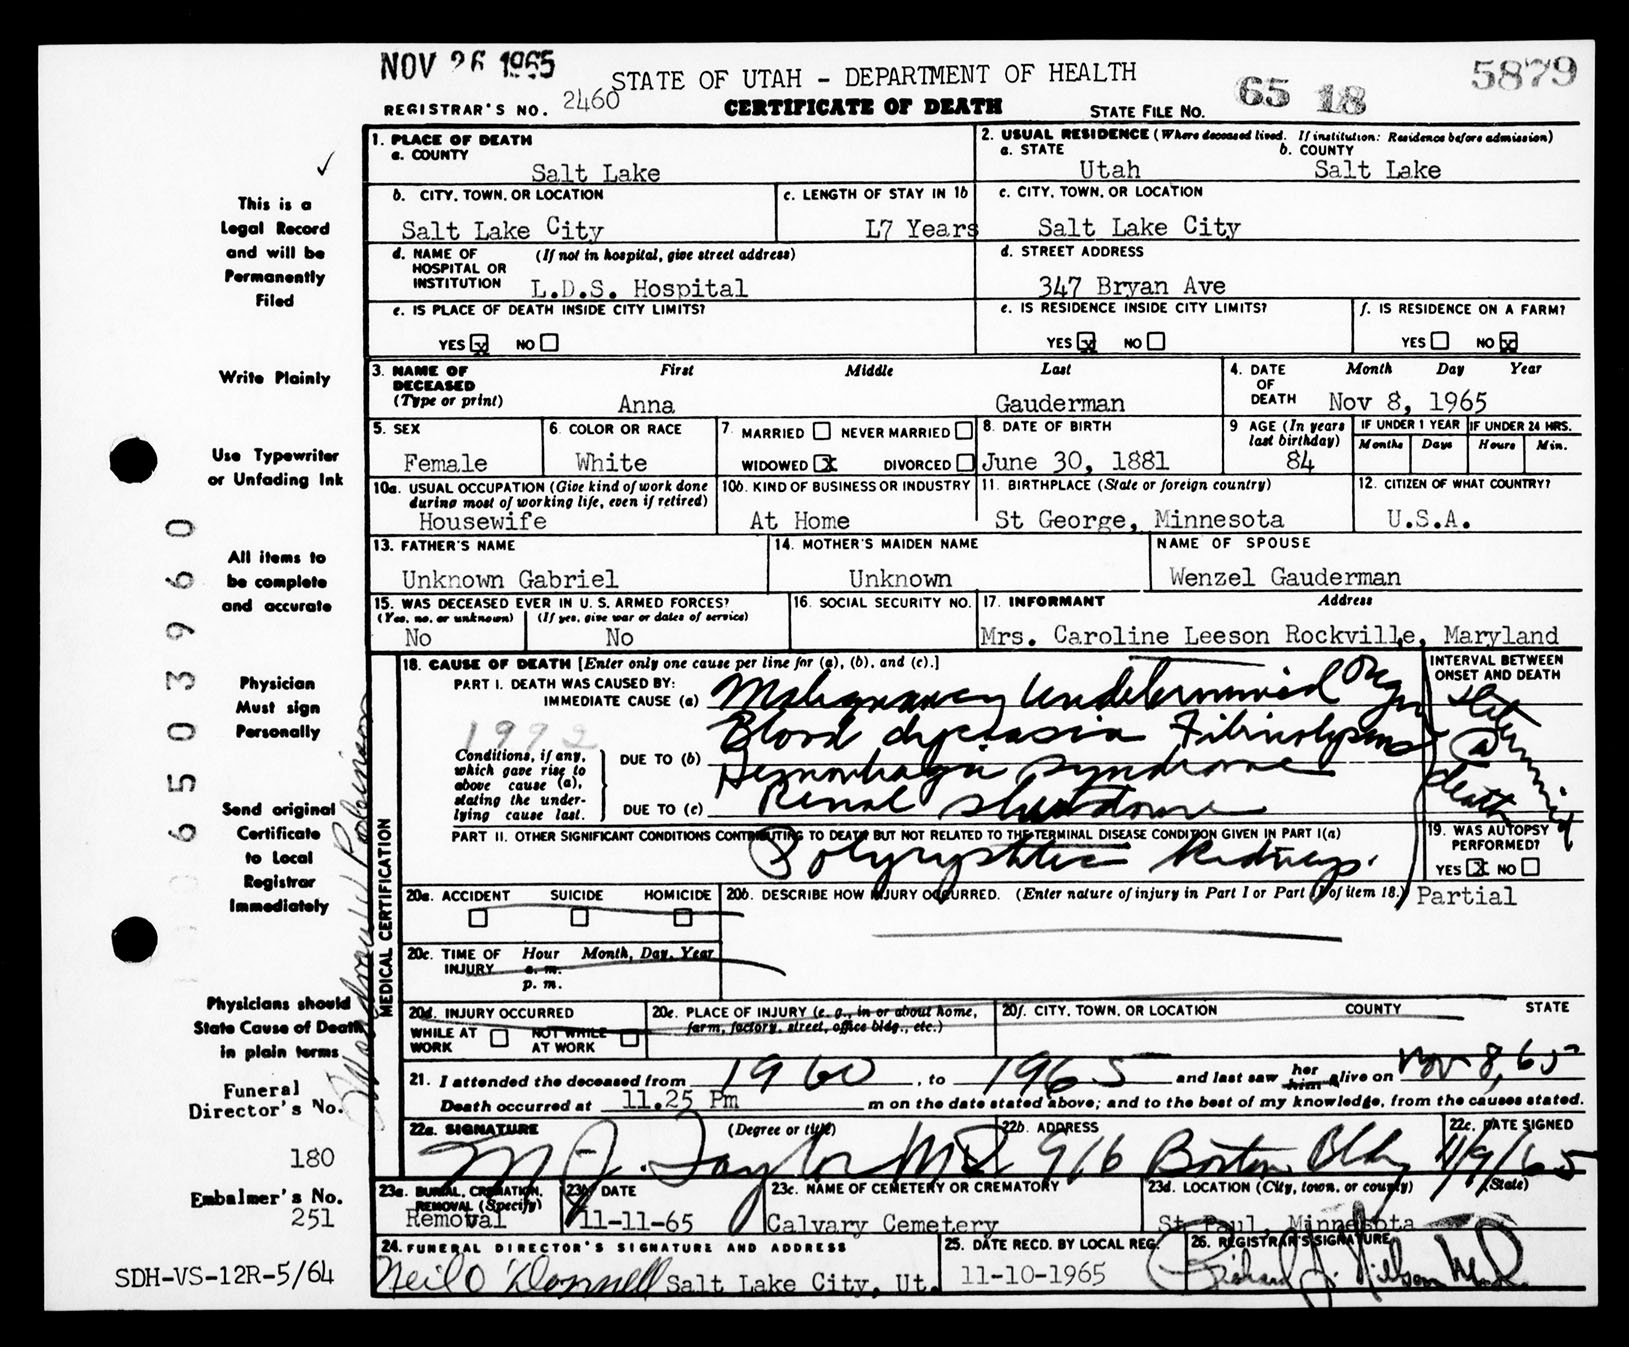 NOV 26 1965
STATE OF UTAH - DEPARTMENT OF HEALTH
5879
REGISTRAR'S NO. 2460
CERTIFICATE OF DEATH
STATE FILE NO. 65 18
1. PLACE OF DEATH
a. COUNTY
Salt Lake
2. USUAL RESIDENCE (Where deceased lived. If institution: Residence before admission)
a. STATE
Utah
b. COUNTY
Salt Lake
b. CITY, TOWN, OR LOCATION
Salt Lake City
c. LENGTH OF STAY IN 1b
L7 Years
c. CITY, TOWN, OR LOCATION
Salt Lake City
d. NAME OF HOSPITAL OR INSTITUTION
(If not in hospital, give street address)
L.D.S. Hospital
d. STREET ADDRESS
347 Bryan Ave
e. IS PLACE OF DEATH INSIDE CITY LIMITS?
YES X NO
e. IS RESIDENCE INSIDE CITY LIMITS?
YES X NO
f. IS RESIDENCE ON A FARM?
YES NO X
3. NAME OF DECEASED (Type or print)
First Middle Last
Anna Gauderman
4. DATE OF DEATH
Month Day Year
Nov 8, 1965
5. SEX
Female
6. COLOR OR RACE
White
7. MARRIED NEVER MARRIED
WIDOWED X DIVORCED
8. DATE OF BIRTH
June 30, 1881
9 AGE (In years last birthday)
84
IF UNDER 1 YEAR
Months Days
IF UNDER 24 HRS.
Hours Min.
10a. USUAL OCCUPATION (Give kind of work done during most of working life, even if retired)
Housewife
10b. KIND OF BUSINESS OR INDUSTRY
At Home
11. BIRTHPLACE (State or foreign country)
St George, Minnesota
12. CITIZEN OF WHAT COUNTRY?
U.S.A.
13. FATHER'S NAME
Unknown Gabriel
14. MOTHER'S MAIDEN NAME
Unknown
NAME OF SPOUSE
Wenzel Gauderman
15. WAS DECEASED EVER IN U.S. ARMED FORCES?
(Yes, no, or unknown) (If yes, give war or dates of service)
No No
16. SOCIAL SECURITY NO.
17. INFORMANT Address
Mrs. Caroline Leeson Rockville, Maryland
MEDICAL CERTIFICATION
18. CAUSE OF DEATH [Enter only one cause per line for (a), (b), and (c).]
PART I. DEATH WAS CAUSED BY:
IMMEDIATE CAUSE (a) Malignancy Undetermined Orgin
1992
Blood dyscrasia Fibrinolysins
Conditions, if any, which gave rise to above cause (a), stating the underlying cause last.
DUE TO (b) Hemorrhagic syndrome
Renal shutdown
DUE TO (c)
INTERVAL BETWEEN ONSET AND DEATH
@ death
PART II. OTHER SIGNIFICANT CONDITIONS CONTRIBUTING TO DEATH BUT NOT RELATED TO THE TERMINAL DISEASE CONDITION GIVEN IN PART I(a)
Polycystic Kidneys.
19. WAS AUTOPSY PERFORMED?
YES X NO
Partial
20a. ACCIDENT SUICIDE HOMICIDE
20b. DESCRIBE HOW INJURY OCCURRED. (Enter nature of injury in Part I or Part II of item 18.)
20c. TIME OF INJURY
Hour Month, Day, Year
a. m.
p. m.
20d. INJURY OCCURRED
WHILE AT WORK NOT WHILE AT WORK
20e. PLACE OF INJURY (e. g., in or about home, farm, factory, street, office bldg., etc.)
20f. CITY, TOWN, OR LOCATION COUNTY STATE
21. I attended the deceased from 1960, to 1965 and last saw her him alive on Nov 8, 65
Death occurred at 11.25 Pm m on the date stated above; and to the best of my knowledge, from the causes stated.
22a. SIGNATURE (Degree or title)
M J. Taylor MD
22b. ADDRESS
916 Boston Bldg
22c. DATE SIGNED
11/9/65
23a. BURIAL, CREMATION, REMOVAL (Specify)
Removal
23b. DATE
11-11-65
23c. NAME OF CEMETERY OR CREMATORY
Calvary Cemetery
23d. LOCATION (City, town, or county) (State)
St Paul, Minnesota
24. FUNERAL DIRECTOR'S SIGNATURE AND ADDRESS
Neil O'Donnell Salt Lake City, Ut.
25. DATE RECD. BY LOCAL REG.
11-10-1965
26. REGISTRAR'S SIGNATURE
This is a
Legal Record
and will be
Permanently
Filed
Write Plainly
Use Typewriter
or Unfading Ink
All items to
be complete
and accurate
Physician
Must sign
Personally
Send original
Certificate
to Local
Registrar
Immediately
Physicians should
State Cause of Death
in plain terms
Funeral
Director's No.
180
Embalmer's No.
251
SDH-VS-12R-5/64
Robinson